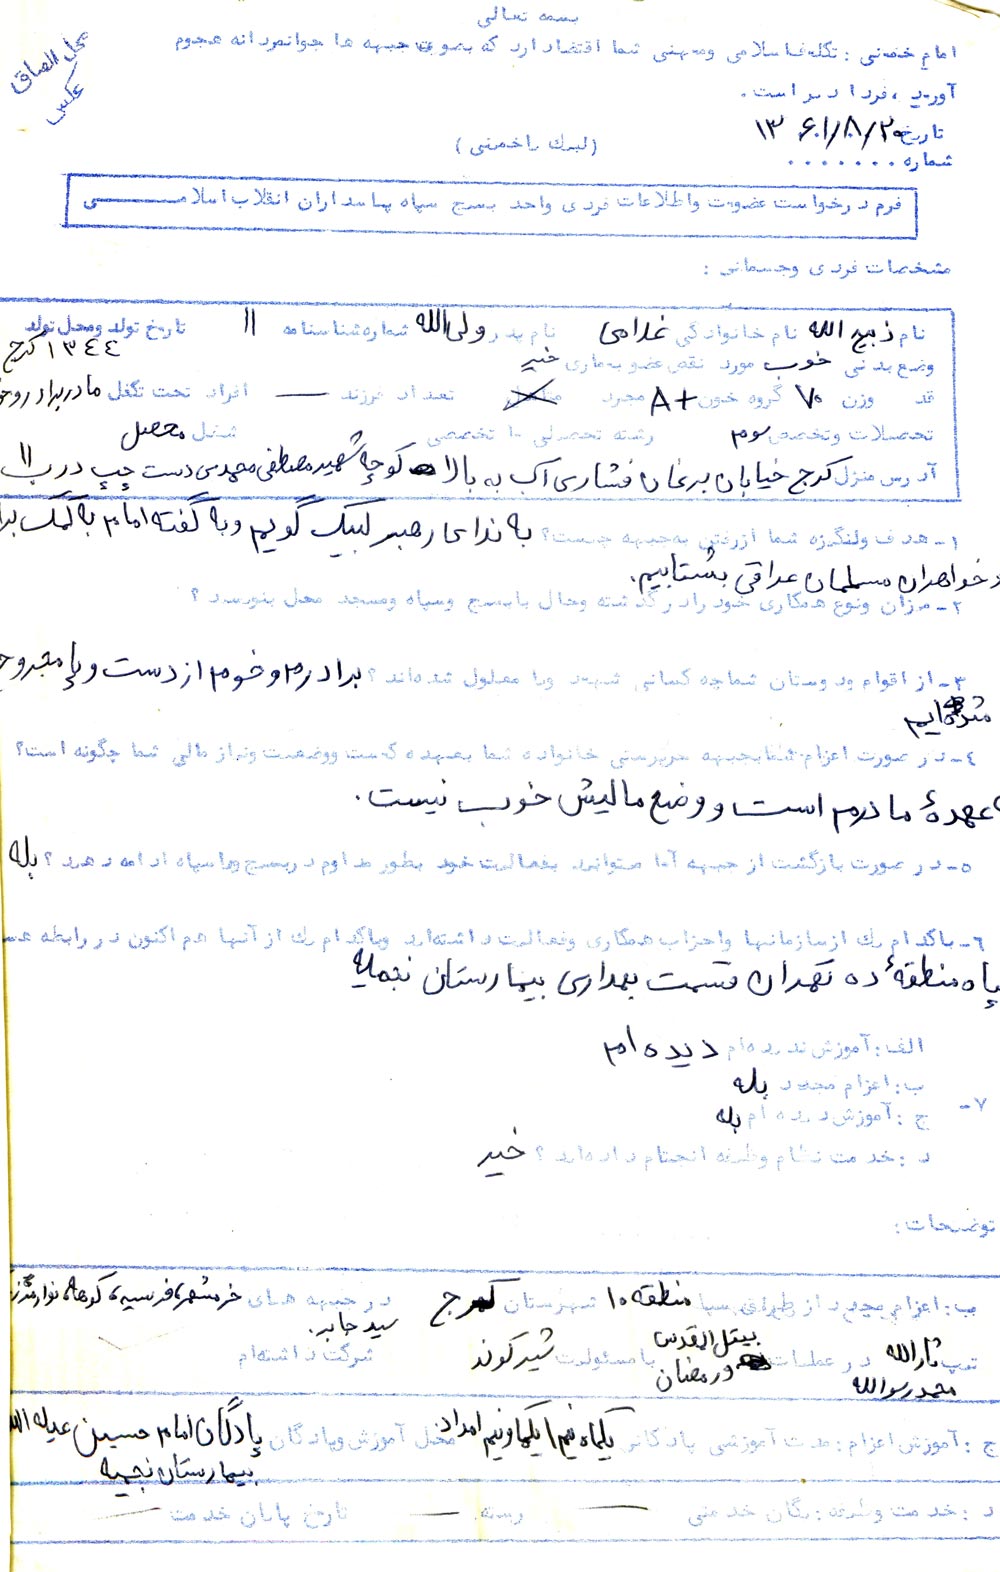 بسمه تعالی
امام خمینی : تکلیف اسلامی و میهنی شما اقتضا دارد که بصوب جبهه ها جوانمردانه هجوم
آورید ، فردا دیر است .
محل الصاق
عکس
تاریخ ۱۳۶۱/۸/۲۰
(لبیک یا خمینی)
شماره .......
فرم درخواست عضویت و اطلاعات فردی واحد بسیج سپاه پاسداران انقلاب اسلامی
مشخصات فردی وجسمانی :
نام ذبیح الله نام خانوادگی غلامی نام پدر ولی الله شماره شناسنامه ۱۱ تاریخ تولد ومحل تولد
۱۳۴۴ کرج
وضع بدنی خوب مورد نقص عضو بیماری خیر
قد وزن ۷۰ گروه خون A+ مجرد متاهل تعداد فرزند — افراد تحت تکفل مادر برادر و خو
تحصیلات وتخصص سوم رشته تحصیلی یا تخصصی شغل محصل
آدرس منزل کرج خیابان برغان فشاری آب به بالا کوچه شهید مصطفی محمدی دست چپ درب ۱۱
۱- هدف وانگیزه شما ازرفتن به جبهه چیست؟ به ندای رهبر لبیک گویم و به گفته امام به کمک برا
د خواهران مسلمان عراقی بشتابیم.
۲- میزان ونوع همکاری خود را در گذشته وحال با بسیج وسپاه ومسجد محل بنویسید ؟
۳- از اقوام ودوستان شما چه کسانی شهید ویا معلول شده‌اند ؟ برادرم و خودم از دست و پا مجروح
شده ایم
۴- در صورت اعزام شما بجبهه سرپرستی خانواده شما بعهده کیست ووضعیت ونیاز مالی شما چگونه است؟
عهدهٔ مادرم است و وضع مالیش خوب نیست.
۵- در صورت بازگشت از جبهه آیا میتوانید بفعالیت خود بطور مداوم در بسیج ویا سپاه ادامه دهید ؟ بله
۶- با کدام یک ازسازمانها واحزاب همکاری وفعالیت داشته‌اید وباکدام یک از آنها هم اکنون در رابطه هس
پاه منطقهٔ ده تهران قسمت بهداری بیمارستان نجمیه
الف : آموزش ندیده‌ام دیده ام
ب : اعزام مجدد بله
۷-
ج : آموزش دیده ام بله
د : خدمت نظام وظیفه انجام داده‌اید ؟ خیر
توضیحات :
ب : اعزام مجدد از طریق سپا منطقه ۱۰ شهرستان کرج در جبهه های خرمشهر،
سید جابر.
تیپ ثارالله در عملیات بیت المقدس با مسئولیت شرکت داشته‌ام
محمد رسوالله و رمضان
ج : آموزش اعزام : مدت آموزشی پادگانی یکماه نیم / یکماونیم امداد محل آموزش وپادگان پادگان امام حسین
بیمارستان نجمیه
د : خدمت وظیفه : یگان خدمتی — رسته — تاریخ پایان خدمت —